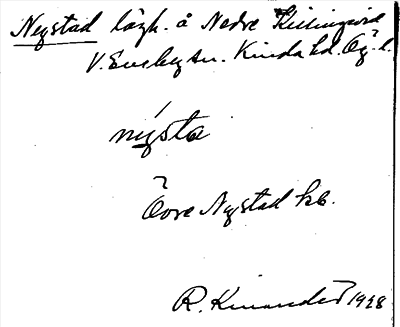 Nystad lägh. å Nedre Killingevid
V. Eneby sn. Kinda hd. Ög. l.
nýsta
Övre Nystad kb.
R. Kinander 1928